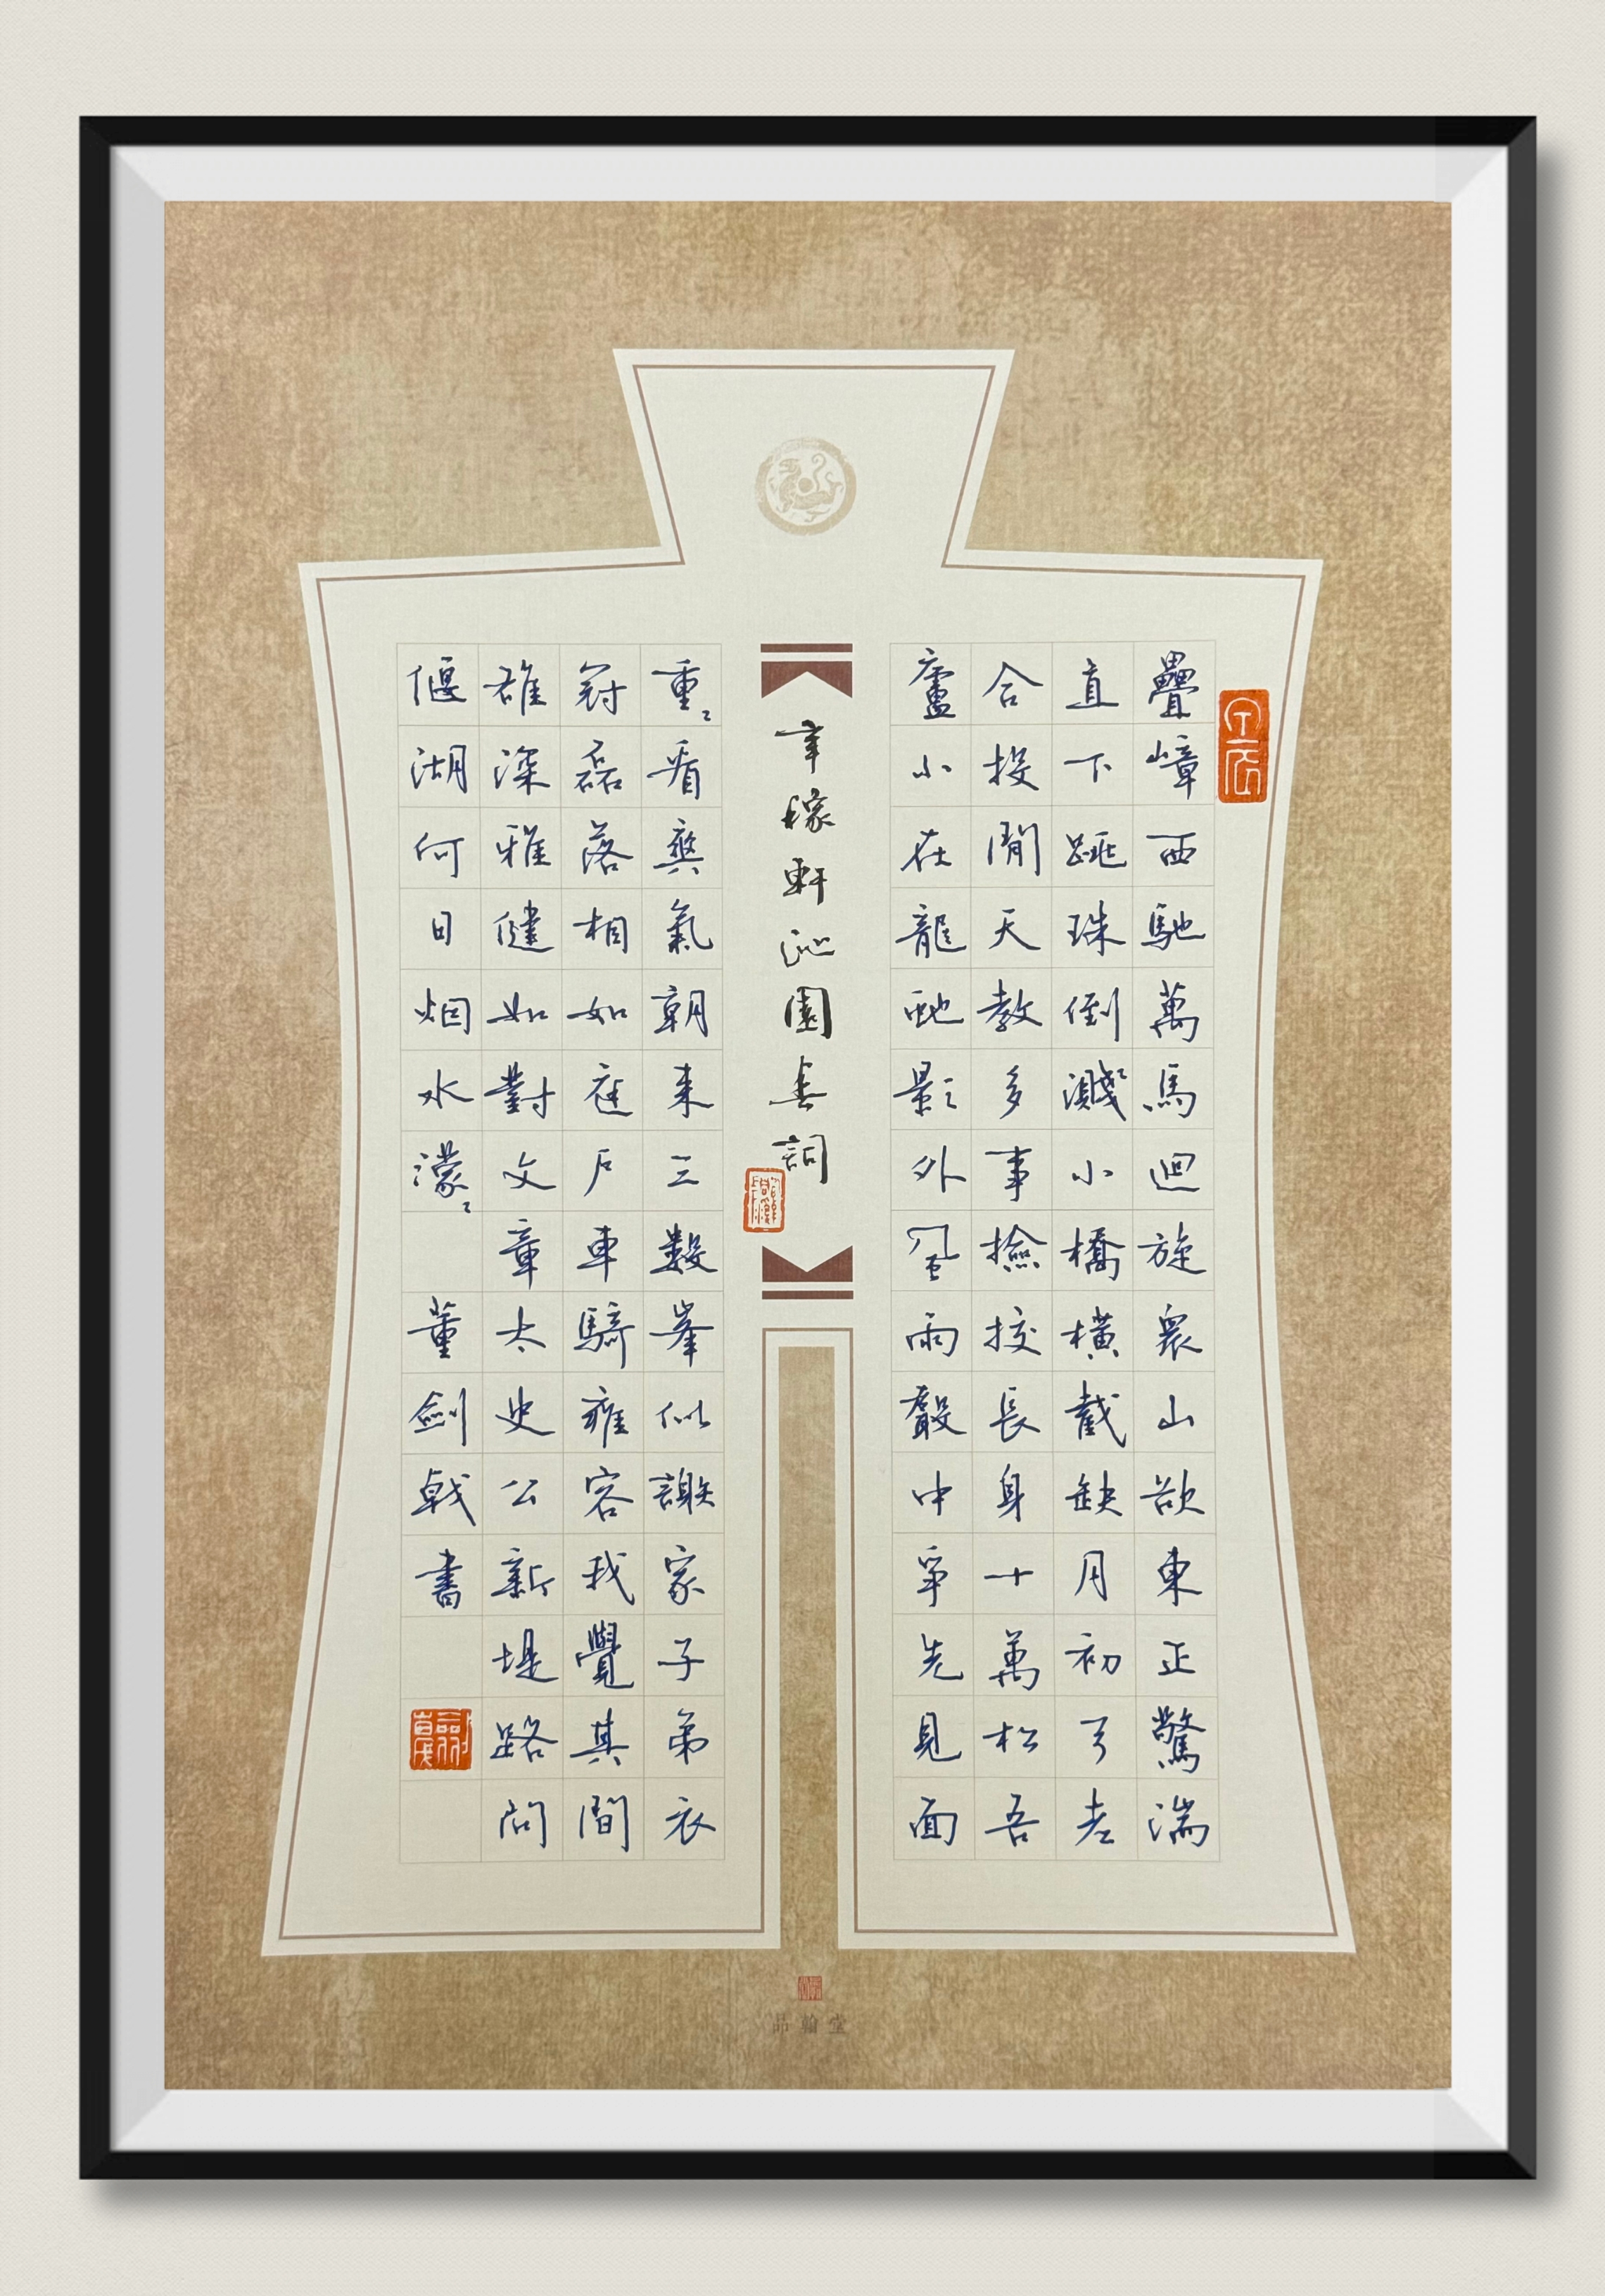 疊嶂西馳萬馬迴旋衆山欲東正驚湍
直下跳珠倒濺小橋橫截缺月初弓老
合投閒天教多事撿挍長身十萬松吾
廬小在龍虵影外風雨聲中爭先見面
辛稼軒沁園春詞
重〻看爽氣朝來三數峯似謝家子弟衣
冠磊落相如庭戶車騎雍容我覺其間
雄深雅健如對文章太史公新堤路問
偃湖何日烟水濛〻 董劍戟書
品翰堂